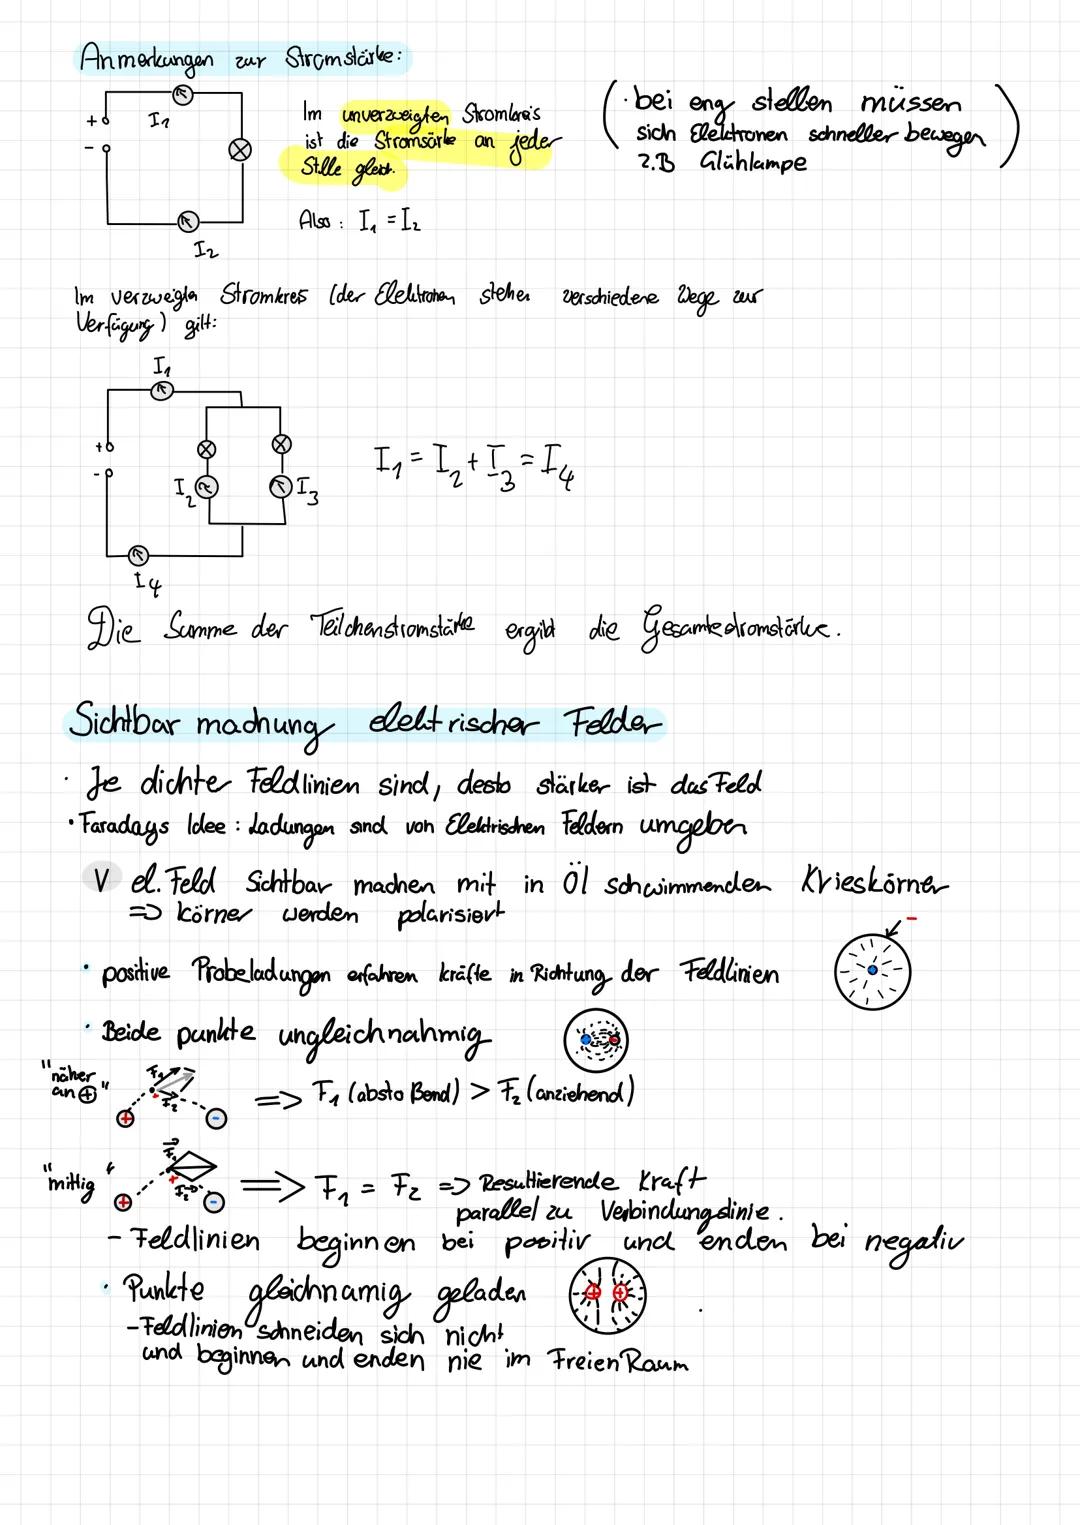 Anmerkungen zur Stromstärke:
I1
+
-
I2
Im unverzweigten Stromkreis
ist die Stromsärke an jeder
Stelle gleich.
Also : I1 = I2
( · bei eng stellen müssen
sich Elektronen schneller bewegen
z.B Glühlampe )
Im verzweigten Stromkreis (der Elektronen stehen verschiedene Wege zur
Verfügung) gilt:
I1
+
-
I2
I3
I4
I1 = I2 + I3 = I4
Die Summe der Teilchenstromstärke ergibt die Gesamtestromstärke.
Sichtbar machung elektrischer Felder
· Je dichter Feldlinien sind, desto stärker ist das Feld
· Faradays Idee : Ladungen sind von Elektrischen Feldern umgeben
V el. Feld Sichtbar machen mit in Öl schwimmenden Krieskörner
=> körner werden polarisiert
-
· positive Probeladungen erfahren kräfte in Richtung der Feldlinien
· Beide punkte ungleichnahmig
"näher
an ⊕"
F1
F2
+
-
=> F1 (absto Bend) > F2 (anziehend)
"mittig"
F1
F2
+
-
=> F1 = F2 => Resultierende Kraft
parallel zu Verbindungslinie.
- Feldlinien beginnen bei positiv und enden bei negativ
· Punkte gleichnamig geladen
+ +
- Feldlinien schneiden sich nicht
und beginnen und enden nie im Freien Raum